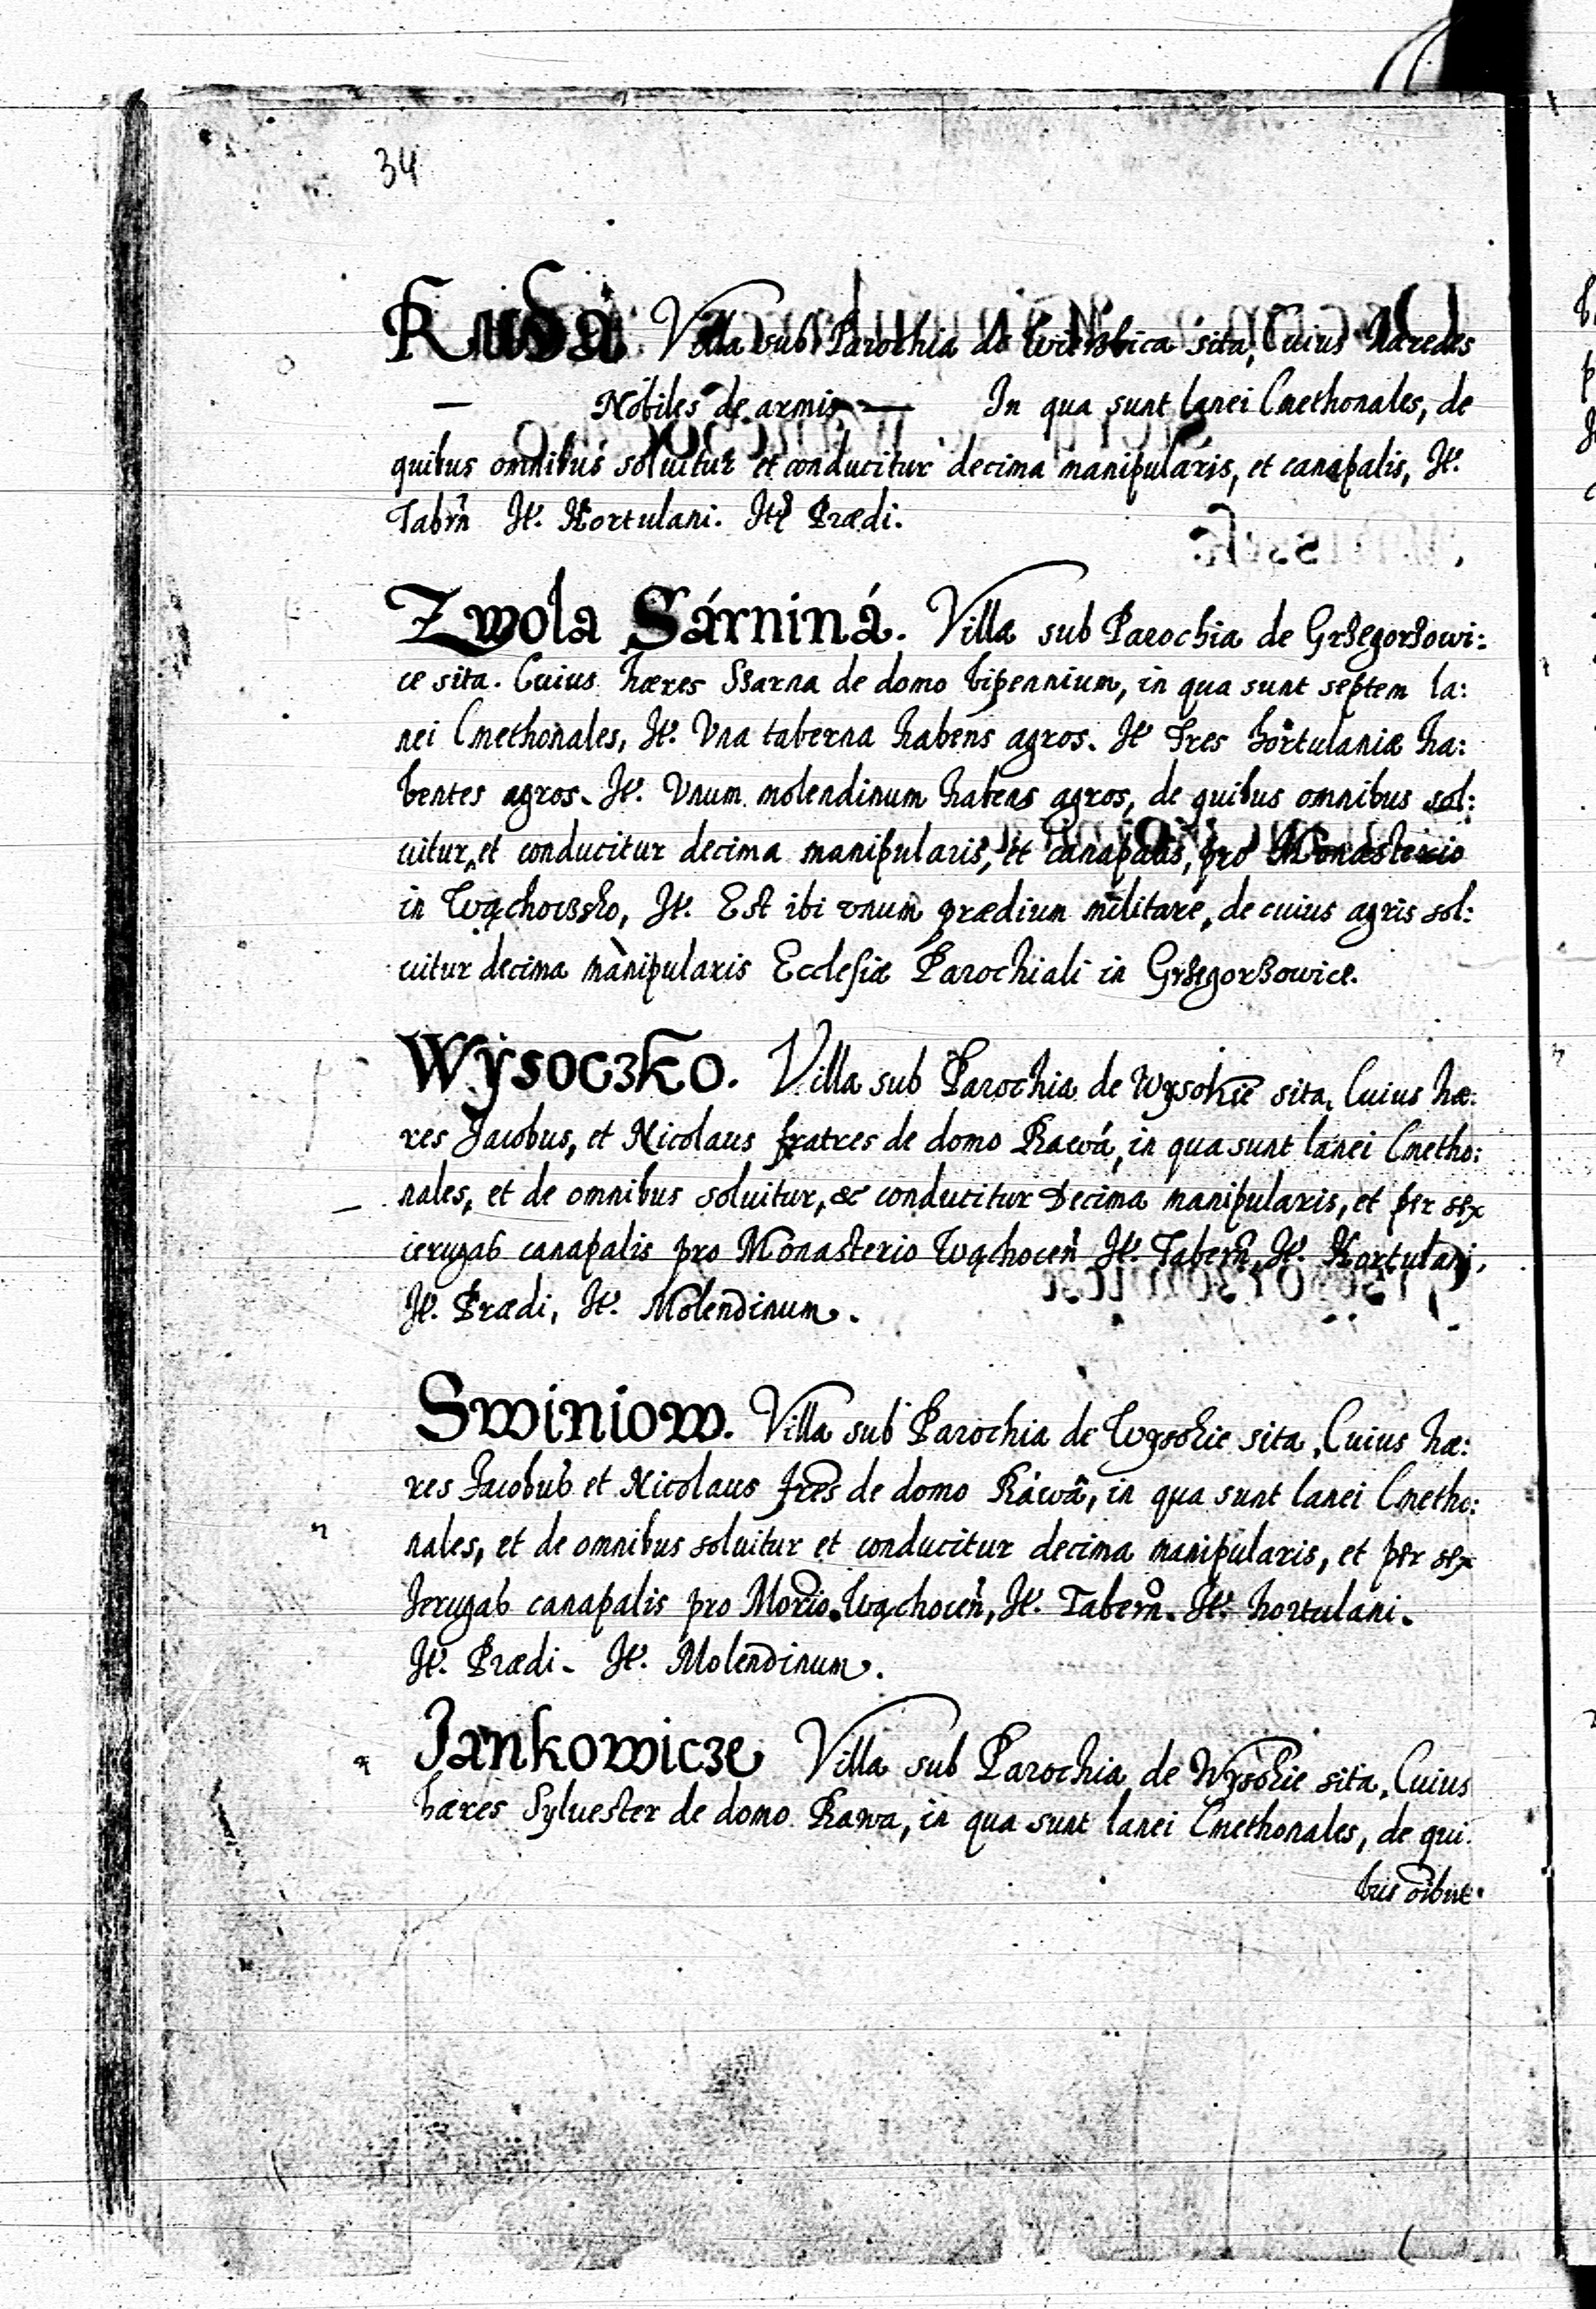 34
Ruda Villa sub Parochia de Wierzbica sita, Cuius Hæredes
— Nobiles de armis — In qua sunt lanei Cmethonales, de
quibus omnibus soluitur et conducitur decima manipularis, et canapalis, It.
Tabrn̄ It. Hortulani. Itē Prædi.
Zwola Sárniná. Villa sub Parochia de Grzegorzowi:
ce sita. Cuius hæres Szarna de domo bipennium, in qua sunt septem la:
nei Cmethonales, It. Vna taberna habens agros. It Tres hortulaniæ ha:
bentes agros. It. Vnum molendinum habens agros, de quibus omnibus sol:
uitur, et conducitur decima manipularis, et canapalis, pro Monasterio
in Wąchoczsko, It. Est ibi vnum prædium militare, de cuius agris sol:
uitur decima manipularis Ecclesiæ Parochiali in Grzegorzowice.
Wysoczko. Villa sub Parochia de Wysokie sita, Cuius hæ:
res Jacobus, et Nicolaus fratres de domo Rawá, in qua sunt lanei Cmetho:
nales, et de omnibus soluitur, & conducitur Decima manipularis, et per sex
ierugas canapalis pro Monasterio Wąchocen̄ It. Tabern̄, It. Hortulani,
It. Prædi, It. Molendinum.
Swiniow. Villa sub Parochia de Wysokie sita, Cuius hæ:
res Jacobus et Nicolaus fres de domo Ráwâ, in qua sunt lanei Cmetho:
nales, et de omnibus soluitur et conducitur decima manipularis, et per sex
Jerugas canapalis pro Mōrio. Wąchocen̄, It. Tabern̄. It. hortulani.
It. Prædi. It. Molendinum.
Jankowicze Villa sub Parochia de Wysokie sita, Cuius
hæres Syluester de domo Rawa, in qua sunt lanei Cmethonales, de qui:
bus oībus